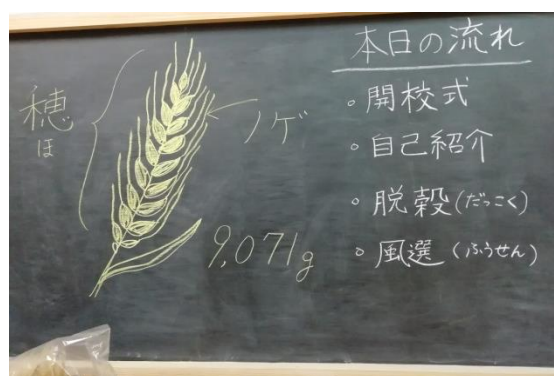 穂
ほ
ノゲ
9,071g
本日の流れ
◦開校式
◦自己紹介
◦脱穀(だっこく)
◦風選(ふうせん)